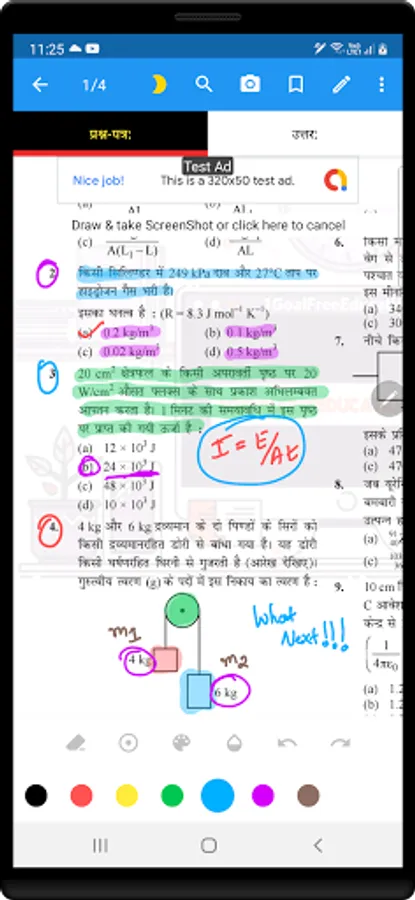 11:25
1/4
प्रश्न-पत्र:
उत्तर:
Test Ad
Nice job!
This is a 320x50 test ad.
Draw & take ScreenShot or click here to cancel
(c) A(L₁–L)
(d) AL
2. किसी सिलिण्डर में 249 kPa दाब और 27°C ताप पर
हाइड्रोजन गैस भरी है।
इसका घनत्व है : (R = 8.3 J mol⁻¹ K⁻¹)
(a) 0.2 kg/m³
(b) 0.1 kg/m³
(c) 0.02 kg/m³
(d) 0.5 kg/m³
3. 20 cm² क्षेत्रफल के किसी अपरावर्ती पृष्ठ पर 20
W/cm² औसत फ्लक्स के साथ प्रकाश अभिलम्बवत
आपतन करता है। 1 मिनट की समयावधि में इस पृष्ठ
पर प्राप्त की गयी ऊर्जा है :
(a) 12 × 10³ J
(b) 24 × 10³ J
(c) 48 × 10³ J
(d) 10 × 10³ J
I = E/At
4. 4 kg और 6 kg द्रव्यमान के दो पिण्डों के सिरों को
किसी द्रव्यमानरहित डोरी से बांधा गया है। यह डोरी
किसी घर्षणरहित घिरनी से गुजरती है (आरेख देखिए)।
गुरुत्वीय त्वरण (g) के पदों में इस निकाय का त्वरण है :
m1
4 kg
m2
6 kg
What
Next!!!
6. किसी
वेग से
पश्चात
इस मीनार
(a) 34
(c) 30
7. नीचे कि
इसके प्र
(a) 47
(c) 47
8. जब यूरे
बमबारी
उत्पन्न ह
(a)
(c)
9. 10 cm
C आवेश
केन्द्र से
1
4πε₀
(a) 1.2
(b) 1.2